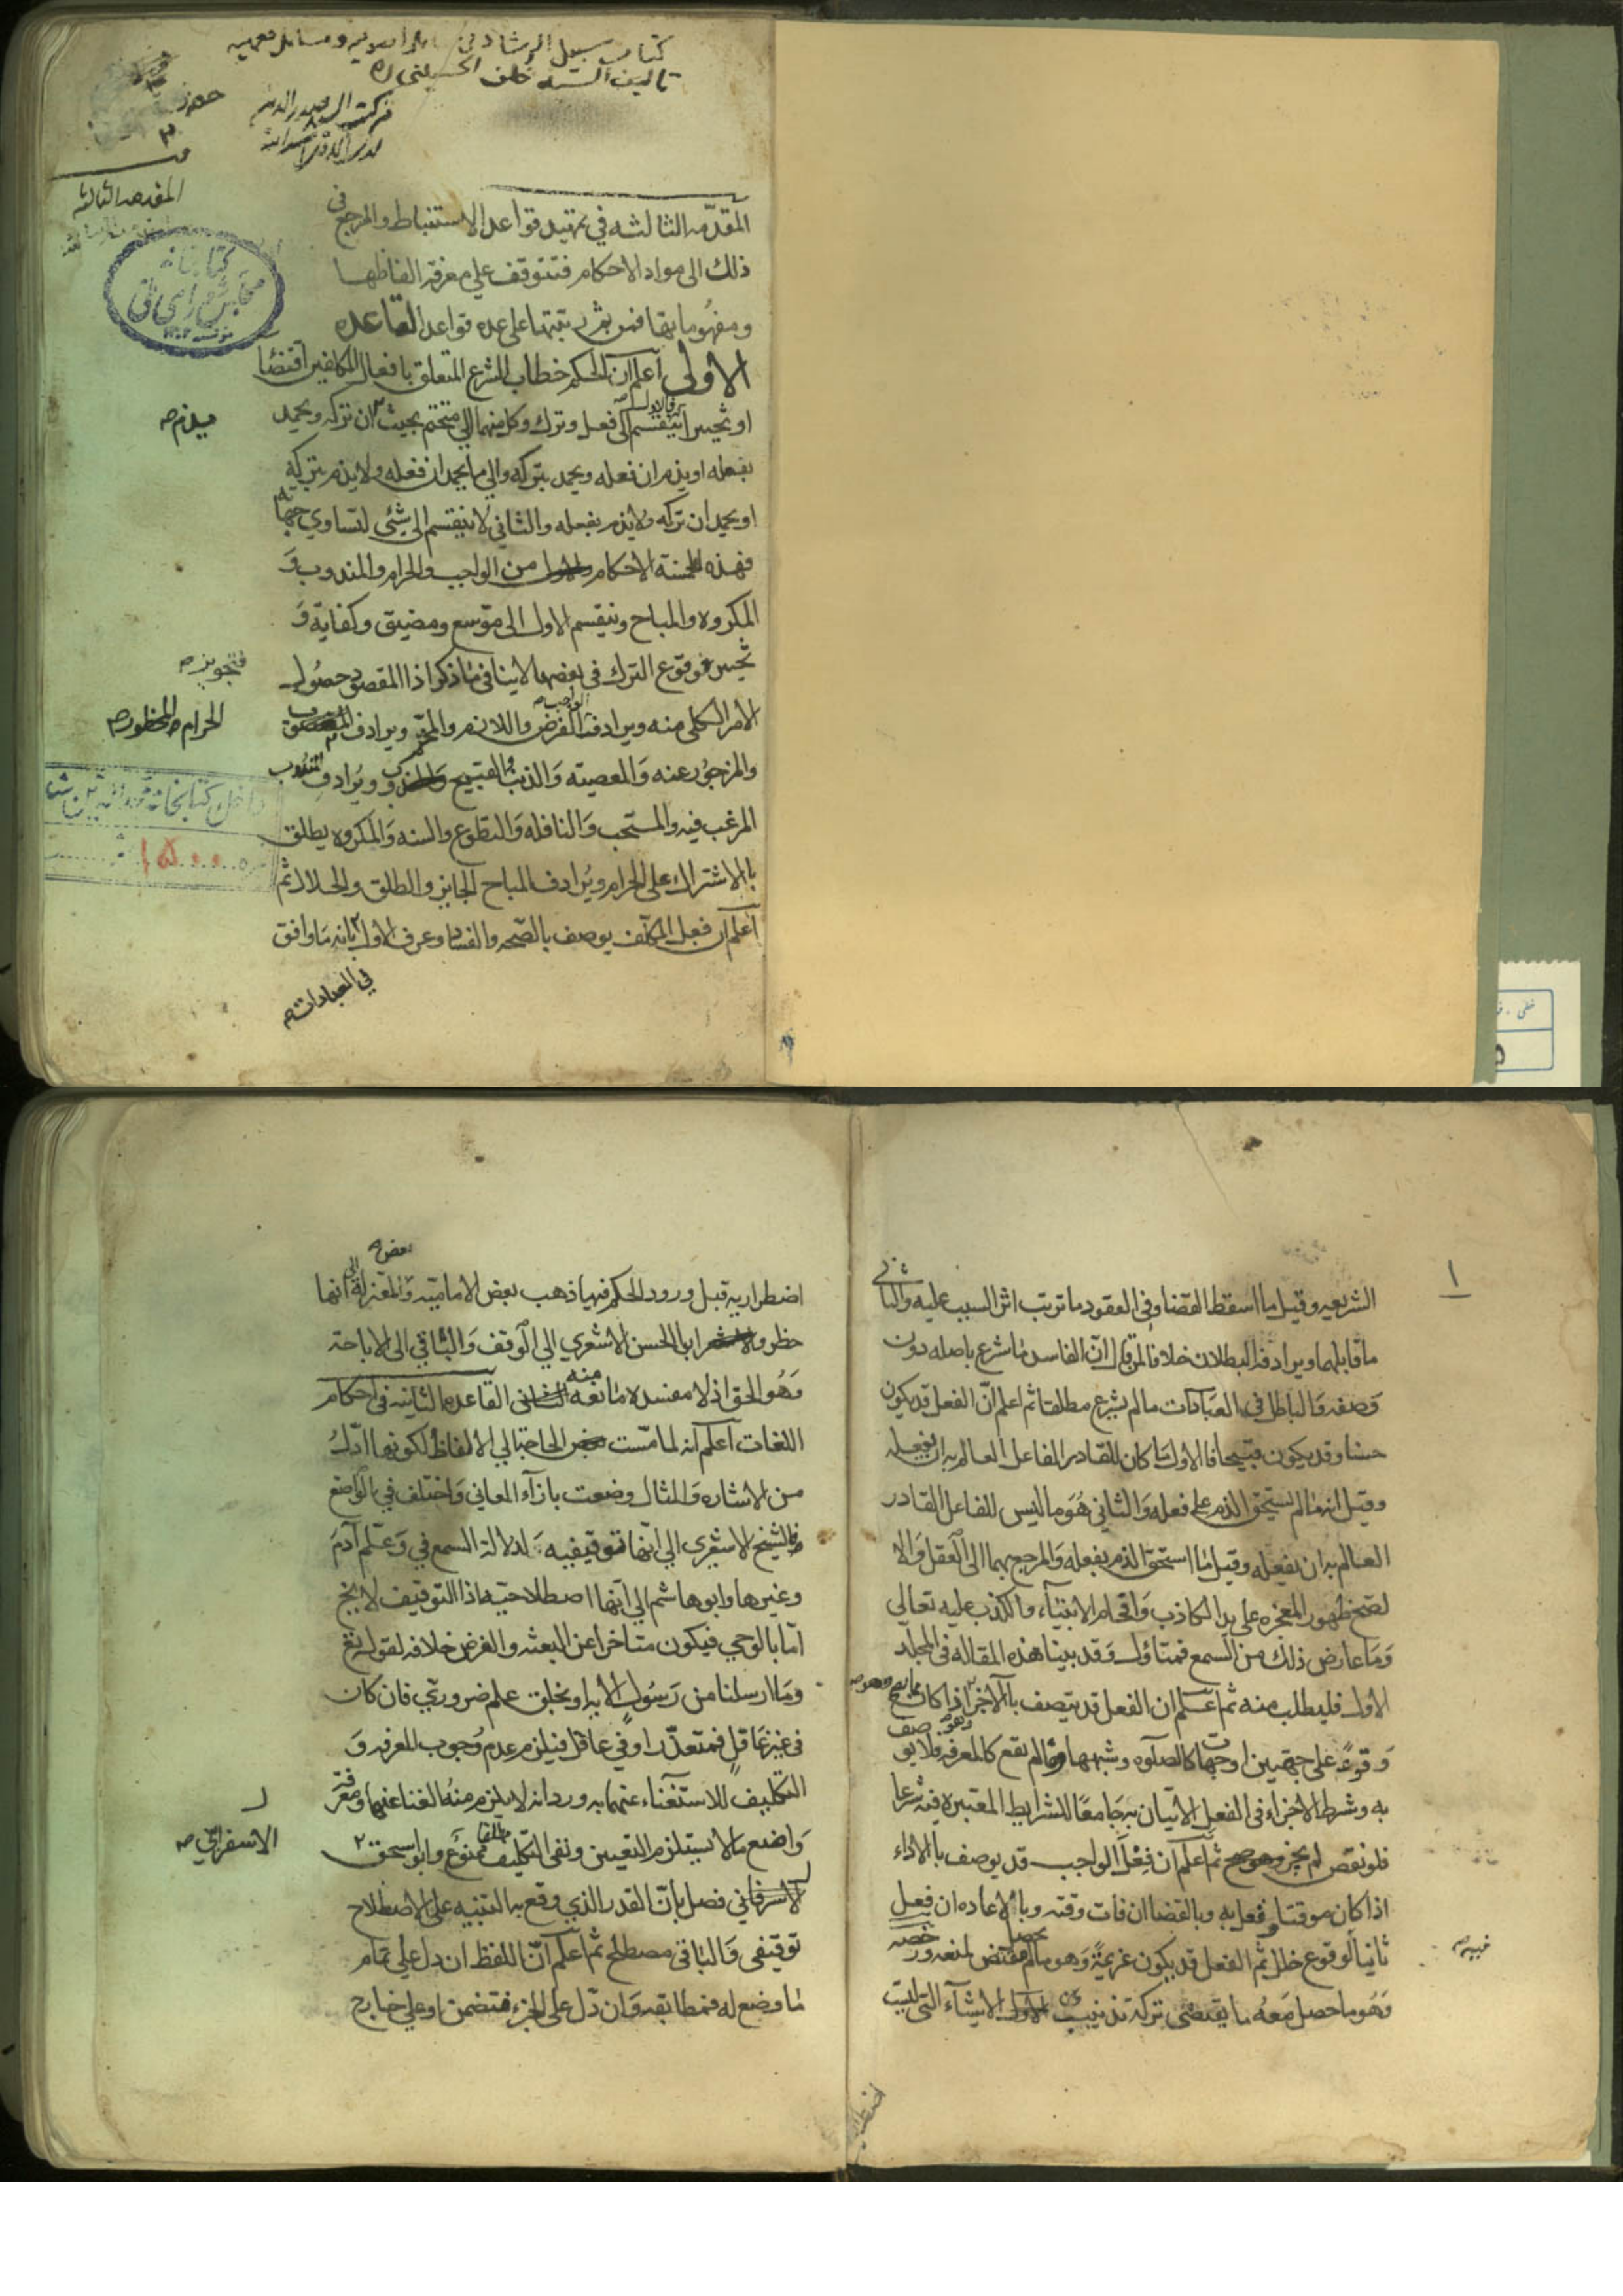 كتاب سبيل الرشاد في
تاليف السيد خلف الحسيني ره
المقدمه الثالثه
المقدّمه الثالثه في تمهيد قواعد الاستنباط والمرجع في
ذلك الى مواد الاحكام فتتوقف على معرفة الفاظها
ومفهوماتها على عده قواعد القاعده
الاولى اعلم ان الحكم خطاب الشرع المتعلق بافعال المكلفين اقتضا
او تخيير فالاول ينقسم الى فعل وترك وكل منهما الى متحتم بحيث ان تركه ويحمد
يذم
بفعله او يذم ان فعله ويحمد بتركه والى ما يحمد ان فعله ولا يذم بتركه
او يحمد ان تركه ولا يذم بفعله والثاني لا ينقسم الى شئ لتساوي جهاته
فهذه الخمسة الاحكام من الواجب والحرام والمندوب وَ
المكروه والمباح وينقسم الاول الى موّسع ومضيق وكفاية وَ
تخيير فوقوع الترك في بعضها لا ينافي ما ذكر اذا المقصود حصُول
فتجويز
الامر الكلي منه ويرادف الواجب الفرض واللازم والمحتم ويرادف
الحرام المحظور
والمزجوُر عنه وَالمعصيته وَالذنب والقبيح ويُرادف المندوب
المرغب فيه والمستحب وَالنافله وَالتطوع والسنه وَالمكروه يطلق
بالاشتراك على الحرام ويُرادف المباح الجايز والطلق والحلال ثم
اعلم ان فعل المكلف يوصف بالصّحه والفساد وعرف الاول بانه مَا وافق
في العبادات
كتابخانه
مجلس شوراى ملى
١٥٠٠٠
١
الشريعه وقيل ما اسقط القضا وفي العقود ما ترتب اثر السبب عليه والثاني
ما قابلهما ويرادفه البطلان خلافا لمن قال ان الفاسد مَا شرع باصله دون
وَصفه وَالباطل في العبَادات ما لم يشرع مطلقا ثم اعلم انّ الفعل قد يكون
حسنا وقد يكون قبيحا فالاول مَا كان للقادر الفاعل العالم به ان يفعله
وقيل انه ما لم يستحق الذم على فعله وَالثاني هُوَ ما ليس للفاعل القادر
العالم به ان يفعله وقيل مَا استحق الذم بفعله وَالمرجع بهما الى العقل وَالا
لصح ظهور المعجزه على يد الكاذب وَافحام الانبيَاء والكذب عليه تعالى
وَمَا عارض ذلك من السمع فمتاوّل وَقد بينا هذه المقاله في المجلد
الاول فليطلب منه ثم اعلم ان الفعل قد يتصف بالاجزا اذا كان
وَقوعُه على جهتين او جهات كالصلوه وشبهها وما لم يقع كالمعرفه فلا يوصف
به وشرط الاجزاء في الفعل الاتيان به جَامعًا للشرايط المعتبره فيه شرعا
فلو نقص لم يجز ثم اعلم ان فعل الواجب قد يوصف بالاداء
اذا كان موقتا وفعل به وبالقضا ان فات وقته وبالاعاده ان فعل
ثانيا لوقوع خلل ثم الفعل قد يكون عزيمَةً وَهو ما لم يحصل مقتض لمنعه ورخصه
وَهُو ما حصل مَعهُ ما يقتضي تركه تذنيب الاشيَآء التي ليست
اضطراريه قبل ورود الحكم فيها ذهب بعض الاماميّه وَبعض المعتزلة الى انها
حظر وَابو الحسن الاشعري الى الوقف وَالباقي الى الاباحة
وَهُو الحق اذ لا مفسده مانعه منه القاعده الثانيه في احكام
اللغات اعلم انه لما مسّت الحاجة الى الالفاظ لكونها ادلّ
من الاشاره وَالمثال وضعت بازآء المعاني وَاختلف في الواضع
فالشيخ الاشعرى الى انّها توقيفيه لدلالة السمع في وَعلّم آدَم
وغيرها وابو هاشم الى انها اصطلاحيّه اذا التوقيف لا يخ
امّا بالوحي فيكون متاخرا عن البعثه والفرض خلافه لقوله تع
ومَا ارسلنا من رَسُولٍ الاية او بخلق علم ضروري فان كان
في غير عَاقلٍ فمتعذّر او في عاقل فيلزم عدم وُجوب المعرفه وَ
التكليف للاستغنآء عنهما به ورد انه لا يلزم منهُ الغنا عنها ومعرفة
وَاضع ما لا يستلزم التعيين ونفي التكليف مطلقا ممنوع وابو اسحق
الاسفرايني
فصل بانّ القدر الذي وقع به التنبيه على الاصطلاح
توقيفي وَالباقي مصطلح ثم اعلم انّ اللفظ ان دل على تمام
مَا وضع له فمطابقه وَان دّل على الجزء فتضمن او على خارج